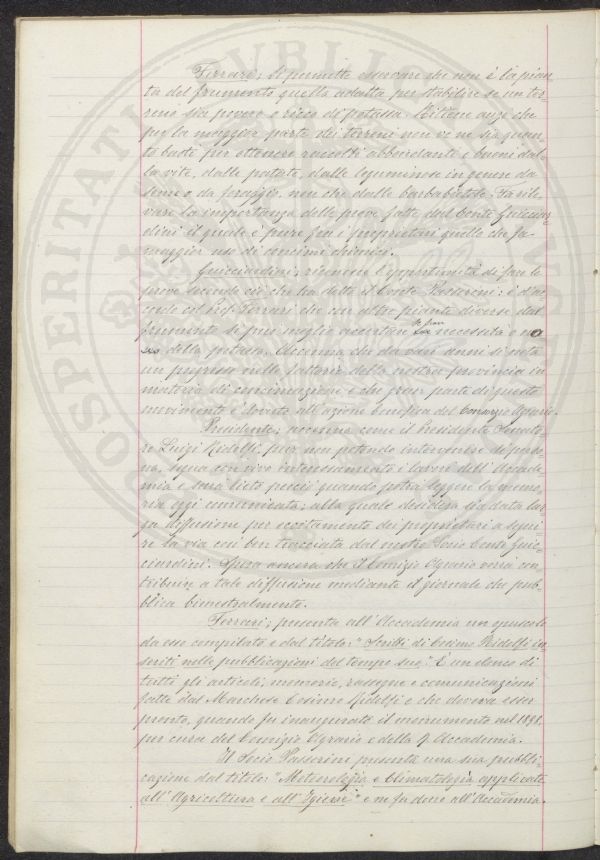 Ferrari, si permette osservare che non è la pian-
ta del frumento quella adatta per stabilire se un ter-
reno sia povero o ricco di potassa. Ritiene anzi che
per la maggior parte dei terreni non ve ne sia quan-
to basti per ottenere raccolti abbondanti e buoni dal-
la vite, dalle patate, dalle leguminose in genere da
seme o da foraggio, non che dalle barbabietole. Fa rile-
vare la importanza delle prove fatte dal Conte Guicciar-
dini il quale è pure fra i proprietari quello che fa
maggior uso di concimi chimici.
Guicciardini, riconosce l'opportunità di fare le
prove secondo ciò che ha detto il Conte Passerini: è d'ac-
cordo col Prof. Ferrari che con altre piante diverse dal
frumento si può meglio accertare necessità o no
della potassa. Accenna che da vari anni si nota
un progresso nelle fattorie della nostra provincia in
materia di concimazioni e che gran parte di questo
movimento è dovuto all'azione benefica del Comizio Agrario.
Presidente, accenna come il Presidente Senato-
re Luigi Ridolfi, pur non potendo intervenire di perso-
na, segua con vivo interessamento i lavori dell'Accade-
mia e sarà lieto perciò quando potrà leggere la memo-
ria oggi comunicata; alla quale desidera sia data lar-
ga diffusione per eccitamento dei proprietari a segui-
re la via così ben tracciata dal nostro Socio Conte Guic-
ciardini. Spera ancora che il Comizio Agrario vorrà con-
tribuire a tale diffusione mediante il giornale che pub-
blica bimestralmente.
Ferrari, presenta all'Accademia un opuscolo
da esso compilato e dal titolo: "Scritti di Cosimo Ridolfi in-
seriti nelle pubblicazioni del tempo suo". È un elenco di
tutti gli articoli, memorie, rassegne e comunicazioni
fatte dal Marchese Cosimo Ridolfi e che doveva esser
pronto, quando fu inaugurato il monumento nel 1898.
per cura del Comizio Agrario e della R. Accademia.
Il Socio Passerini presenta una sua pubbli-
cazione dal titolo: "Meteorologia e Climatologia applicate
all'Agricoltura e all'Igiene" e ne fa dono all'Accademia.